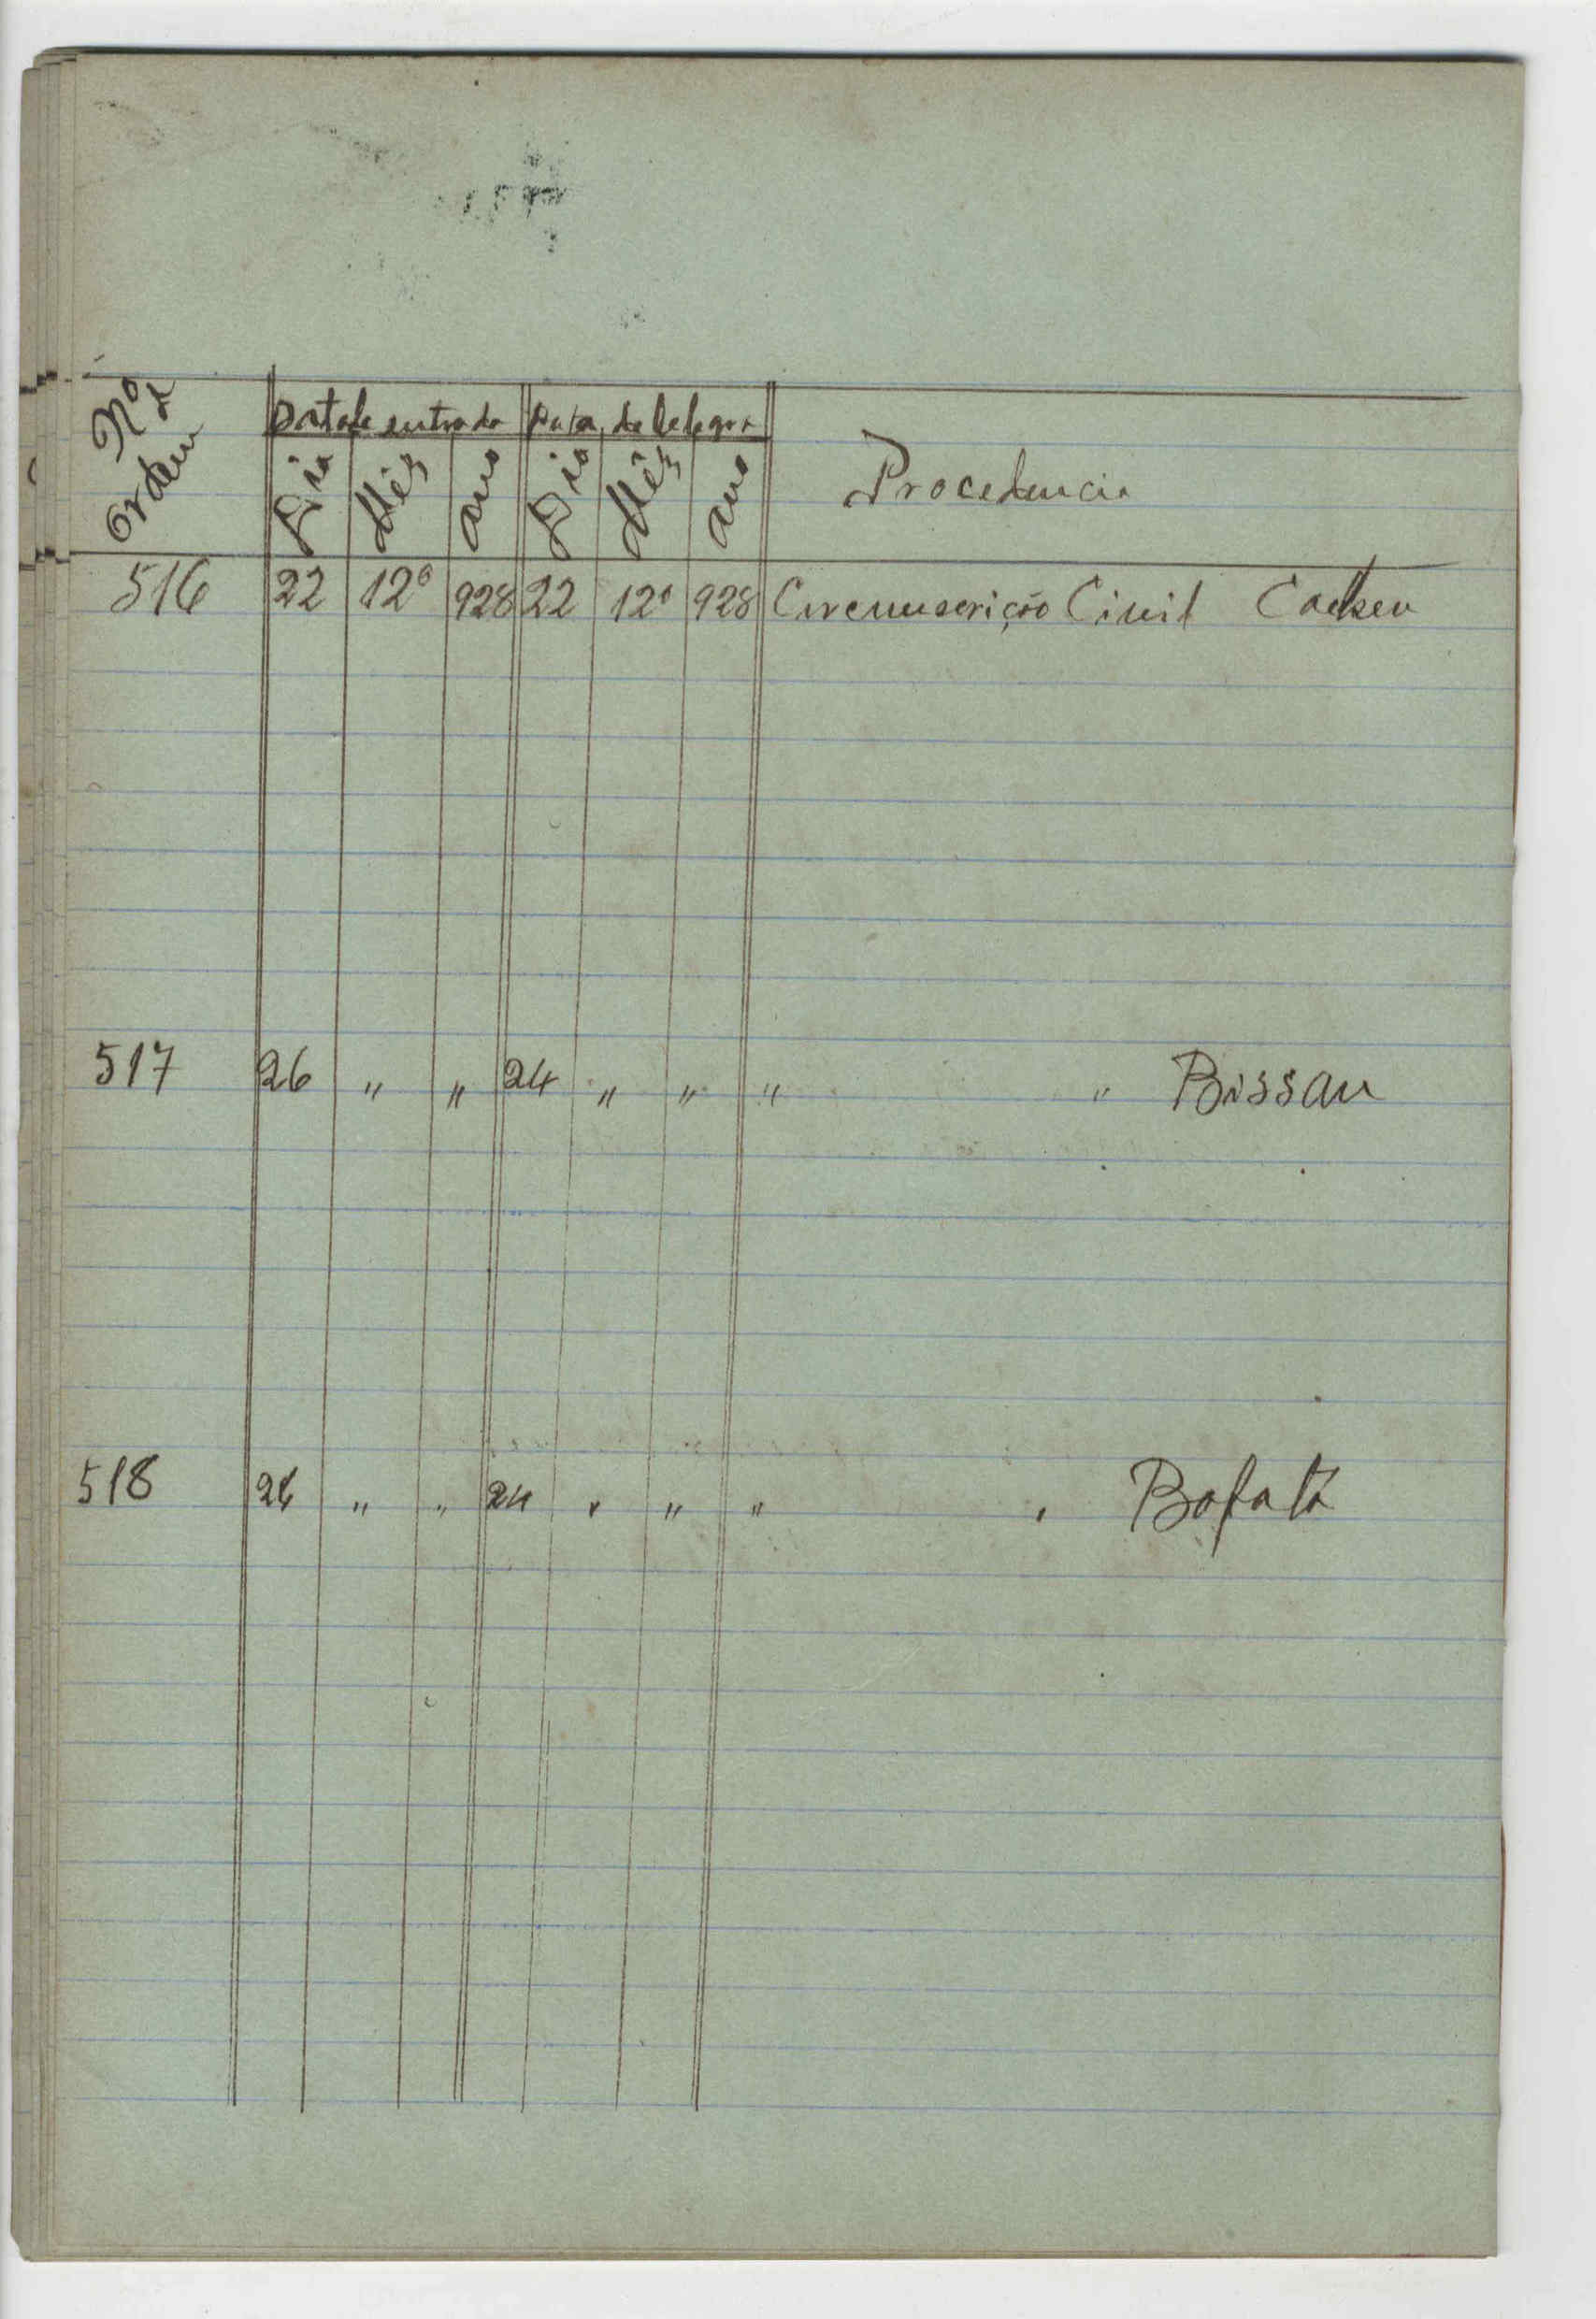 Nº de Ordem
Data de entrada Data, do telegra
Dia Mês ano Dia Mês ano Procedencia
516 22 12º 928 22 12º 928 Circunscrição Civil Cacheu
517 26 " " 24 " " " " Bissau
518 26 " " 24 " " " " Bafatá